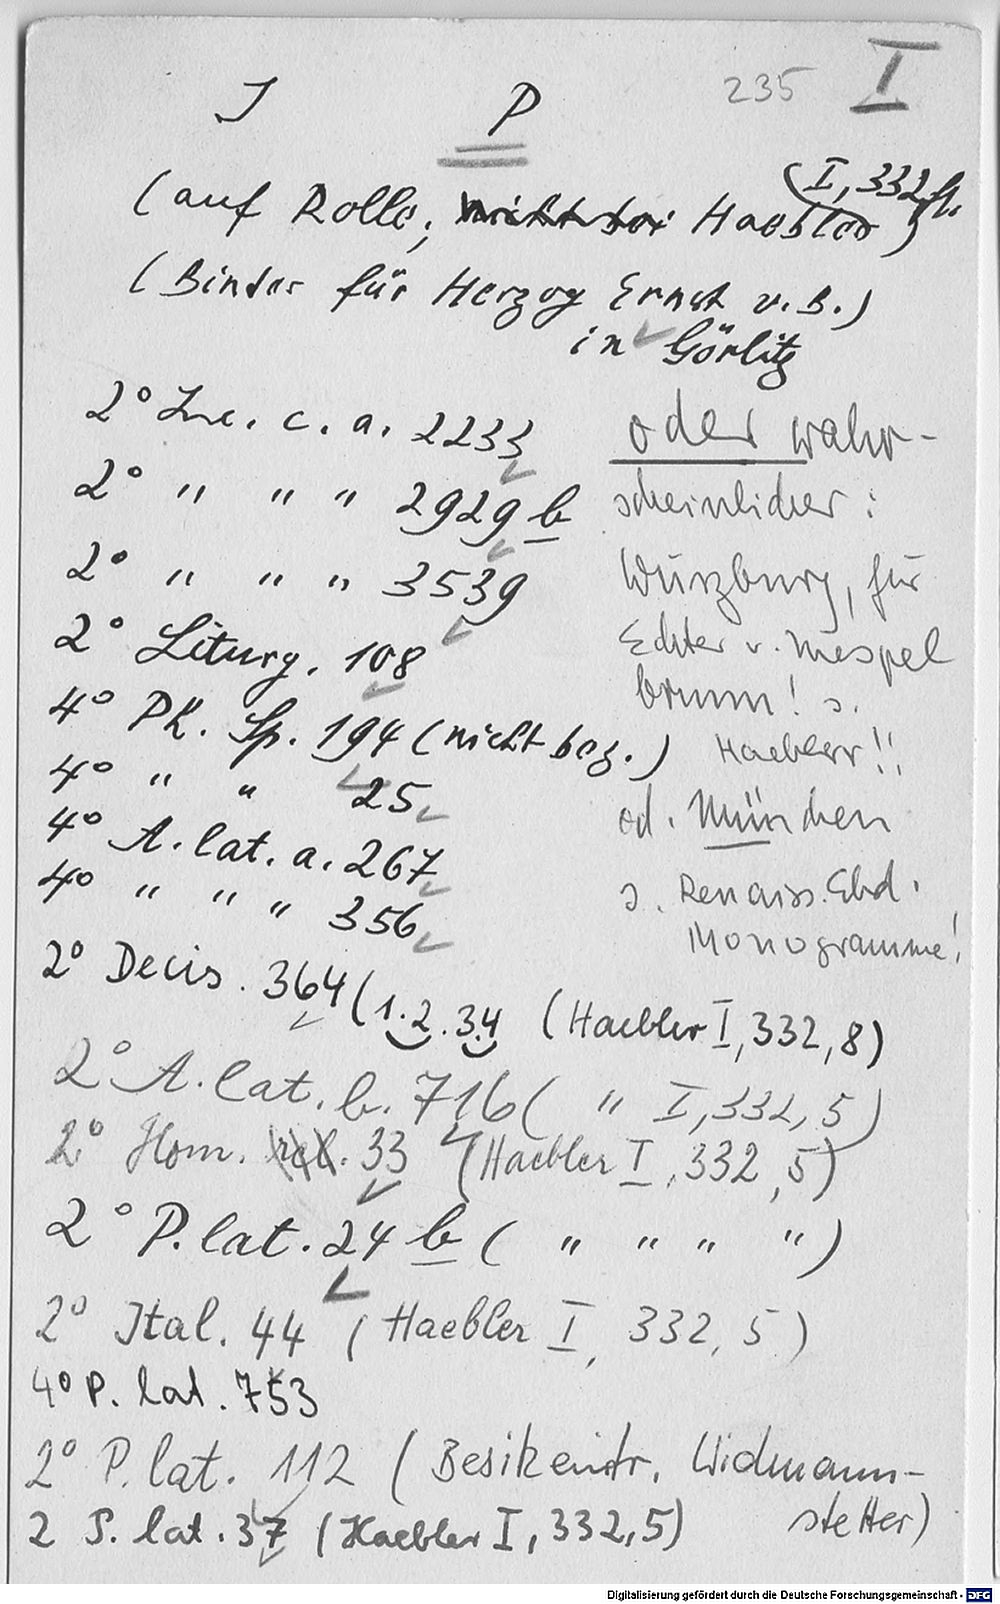 J P 235 I
(I, 332 ff.
(auf Rolle, nicht bei Haebler)
(Binder für Herzog Ernst v. B.)
in Görlitz
2° Inc. c. a. 2233
2° " " " 2929 b
2° " " " 3539
2° Liturg. 108
4° P.K. Sp. 194 (nicht bez.)
4° " " 25
4° A. lat. a. 267
4° " " " 356
oder wahr-
scheinlicher:
Würzburg, für
Echter v. Mespel
brunn! s.
Haebler!!
od. München
s. Renaiss. Ebd.
Monogramme!
2° Decis. 364 (1.2.3.4 (Haebler I, 332, 8)
2° A. lat. b. 716 ( " I, 332, 5)
2° Hom. 33 (Haebler I, 332, 5)
2° P. lat. 24 b ( " " " " )
2° Ital. 44 (Haebler I, 332, 5)
4° P. lat. 753
2° P. lat. 112 (Besitzeintr. Widmann-
stetter)
2 P. lat. 37 (Haebler I, 332, 5)
Digitalisierung gefördert durch die Deutsche Forschungsgemeinschaft - DFG